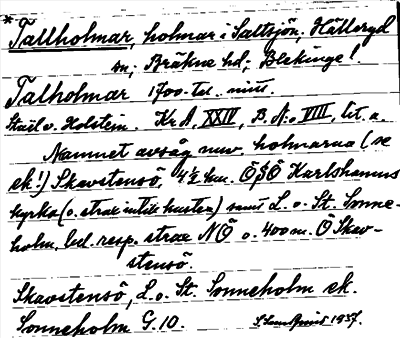 *Tallholmar, holmar i Saltsjön, Hällaryd
sn; Bräkne hd; Blekinge!
Talholmar 1700-tal. mitt.
Staël v. Holstein. Kr. A, XXIV, B. N:o VIII, lit. a.
Namnet avsåg nuv. holmarna (se
ek!) Skavstensö, 4½ km. ÖSÖ Karlshamns
kyrka (o. strax intill kusten) samt L. o. St. Sonne-
holm, bel. resp. strax NÖ o. 400 m. Ö Skav-
stensö.
Skavstensö, L. o. St. Sonneholm ek.
Sonneholm G. 10. 1937.